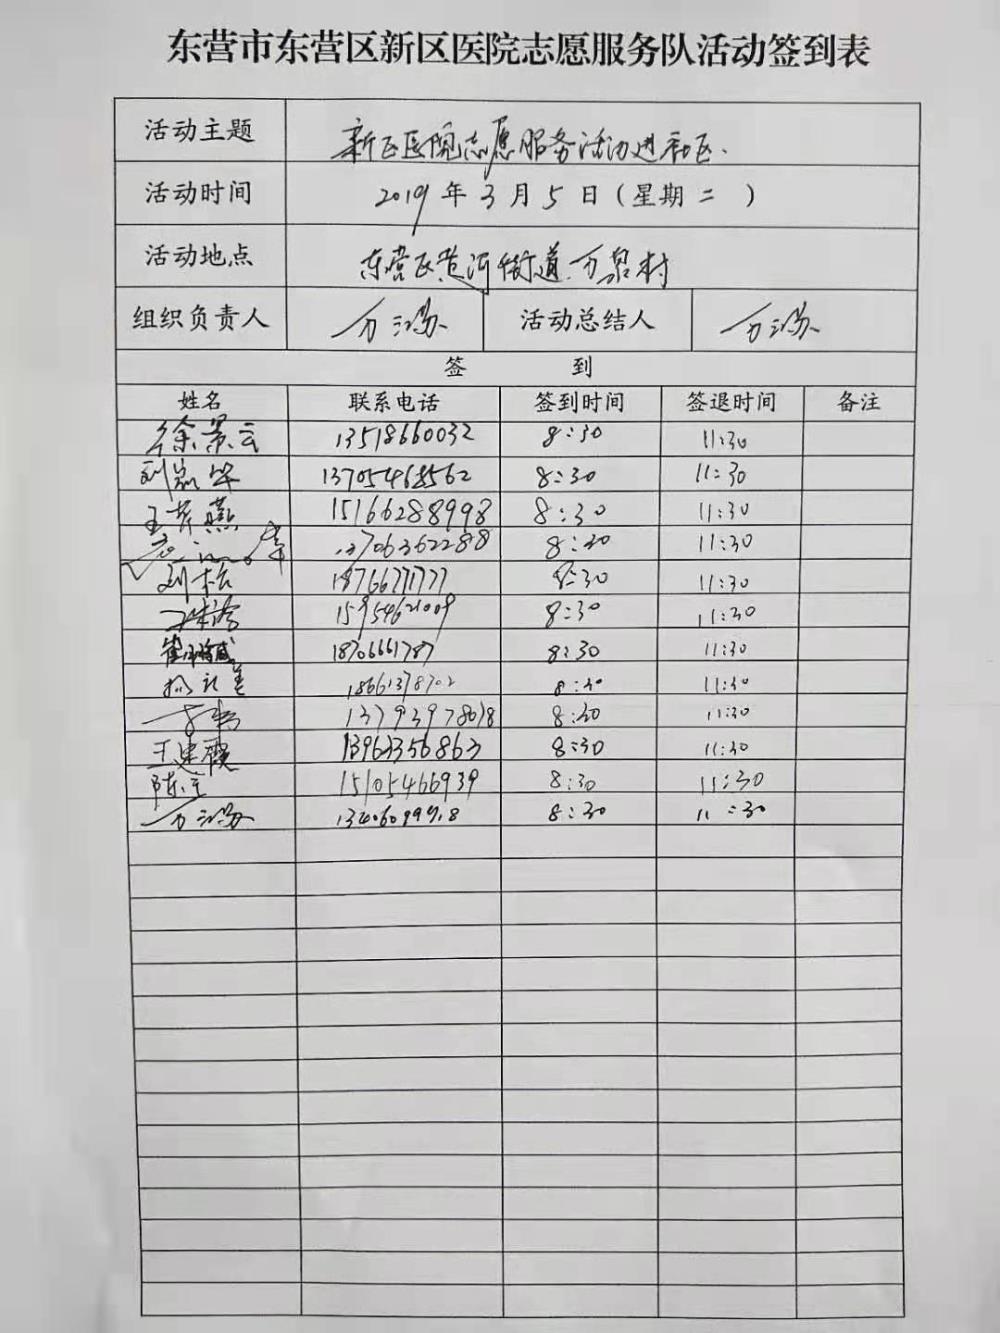 东营市东营区新区医院志愿服务队活动签到表
活动主题 新区医院志愿服务活动进社区.
活动时间 2019年3月5日(星期二 )
活动地点 东营区黄河街道万泉村
组织负责人 万 活动总结人 万
签 到
姓名 联系电话 签到时间 签退时间 备注
徐景云 13518660032 8:30 11:30
刘 华 8:30 11:30
王 燕 15166288998 8:30 11:30
8:30 11:30
刘 18766771777 8:30 11:30
15954621009 8:30 11:30
崔 18706661787 8:30 11:30
8:30 11:30
13793978018 8:30 11:30
王建霞 13963356863 8:30 11:30
陈 15105466939 8:30 11:30
万 8:30 11:30